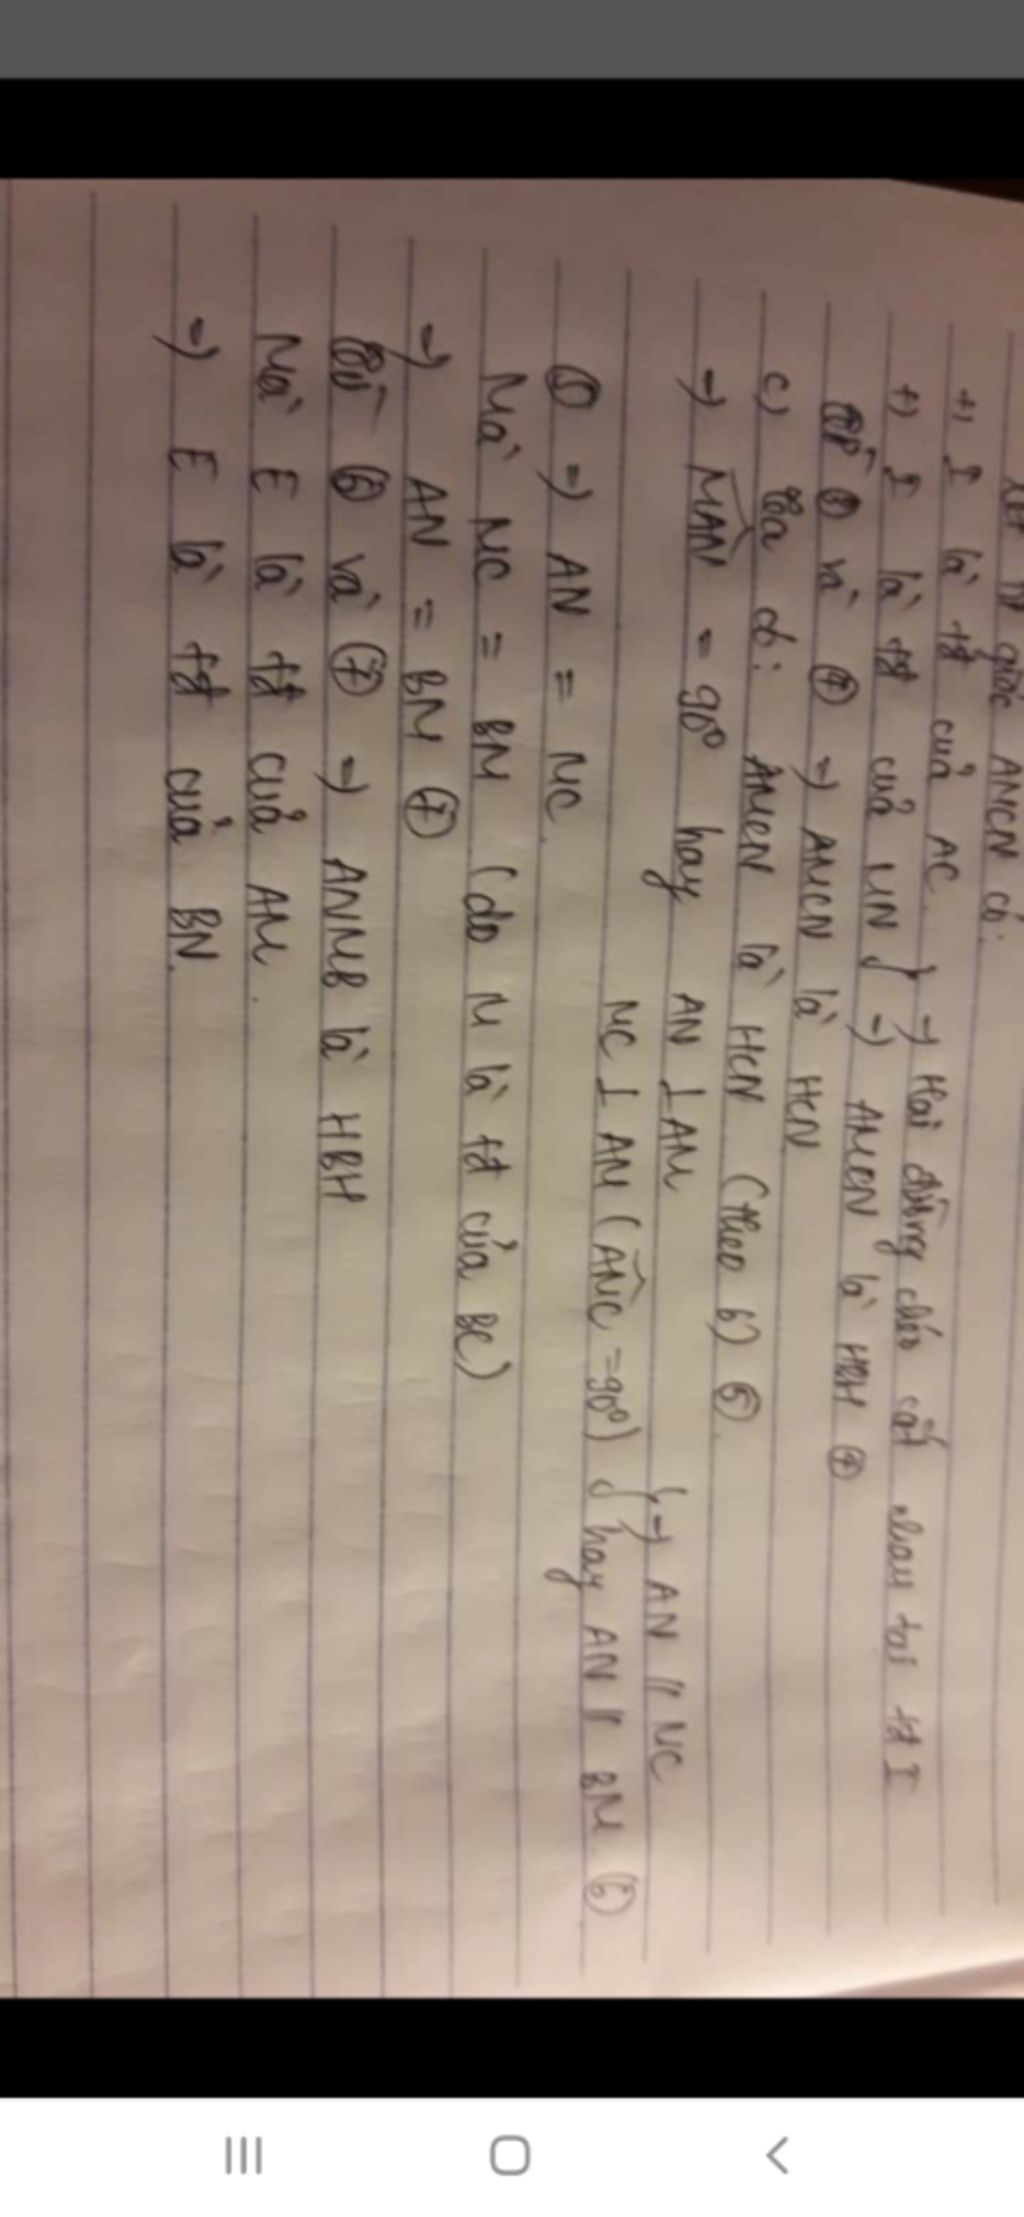 Xét tứ giác AMCN có:
+) I là tđ của AC
+) I là tđ của MN } → Hai đường chéo cắt nhau tại tđ I
→ AMCN là HBH ④
Từ ① và ④ → AMCN là HCN
c) Ta có: AMCN là HCN (theo b) ⑤.
→ MAN = 90° hay AN ⊥ AM
MC ⊥ AM (AMC = 90°) } → AN // MC
hay AN // BM ⑥
⑤ → AN = MC.
Mà MC = BM (do M là tđ của BC)
→ AN = BM ⑦
Từ ⑥ và ⑦ → ANMB là HBH
Mà E là tđ của AM.
→ E là tđ của BN.